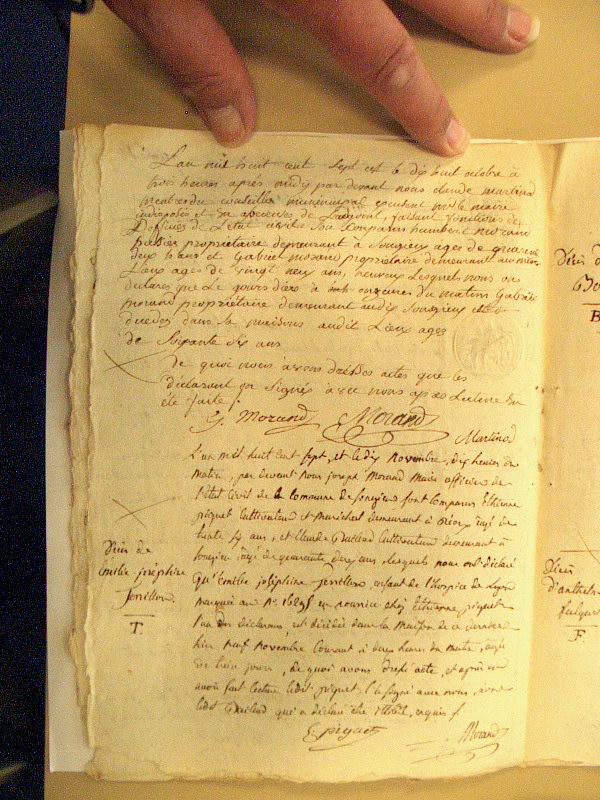 L'an mil huit cent sept et le dix huit octobre à
trois heures après midy par devant nous claude martinod
membre du conseille municipal
et en absences de L'adjoint, faisant fonctions de
D'officier de L'état civile Son Comparus humbert morand
propriétaire demeurant à Songieux ages de quarente
deux ans et Gabriel morand propriétaire demeurant au même
Lieux ages de vingt neuf ans, Lesquels nous on
déclares que Le jours d'ière à onze eures du matin Gabriel
morand propriétaire demeurant audit Songieux est
décédes dans sa maisons audit Lieux ages
de Soixante Six ans
de quoi nous avons dressés actes que les
déclarant on Signés avec nous après Lecture En
été faite /.
G. Morand Morand
Martinod
L'an mil huit cent sept, et le dix novembre, dix heures du
matin, par devant nous joseph Morand Maire officier de
l'état civil de la commune de Songieu sont comparus Etienne
piquet Cultivateur et Marechal demeurant à agé de
trente 4 ans, et Claude Cultivateur demeurant à
Songieu agé de quarante deux ans, lesquels nous ont déclaré
Qu'émilie joséphine Jenillon, enfant de l'hospice de Lyon
marquée au No. en nourice chez Etienne piquet
l'un des déclarans, est décédée dans la maison de ce dernier
hier neuf novembre Courant à deux heures du matin, agée
de huit jours, de quoi avons dressé acte, et après en
avoir fait lecture ledit piquet l'a signé avec nous, non
ledit qui a déclaré être illitéré, enquis /.
E. piquet Morand
Décès de
émilie joséphine
Jenillon.
T.
Décès d
Bo
B
Décès
d'anthelm
F.